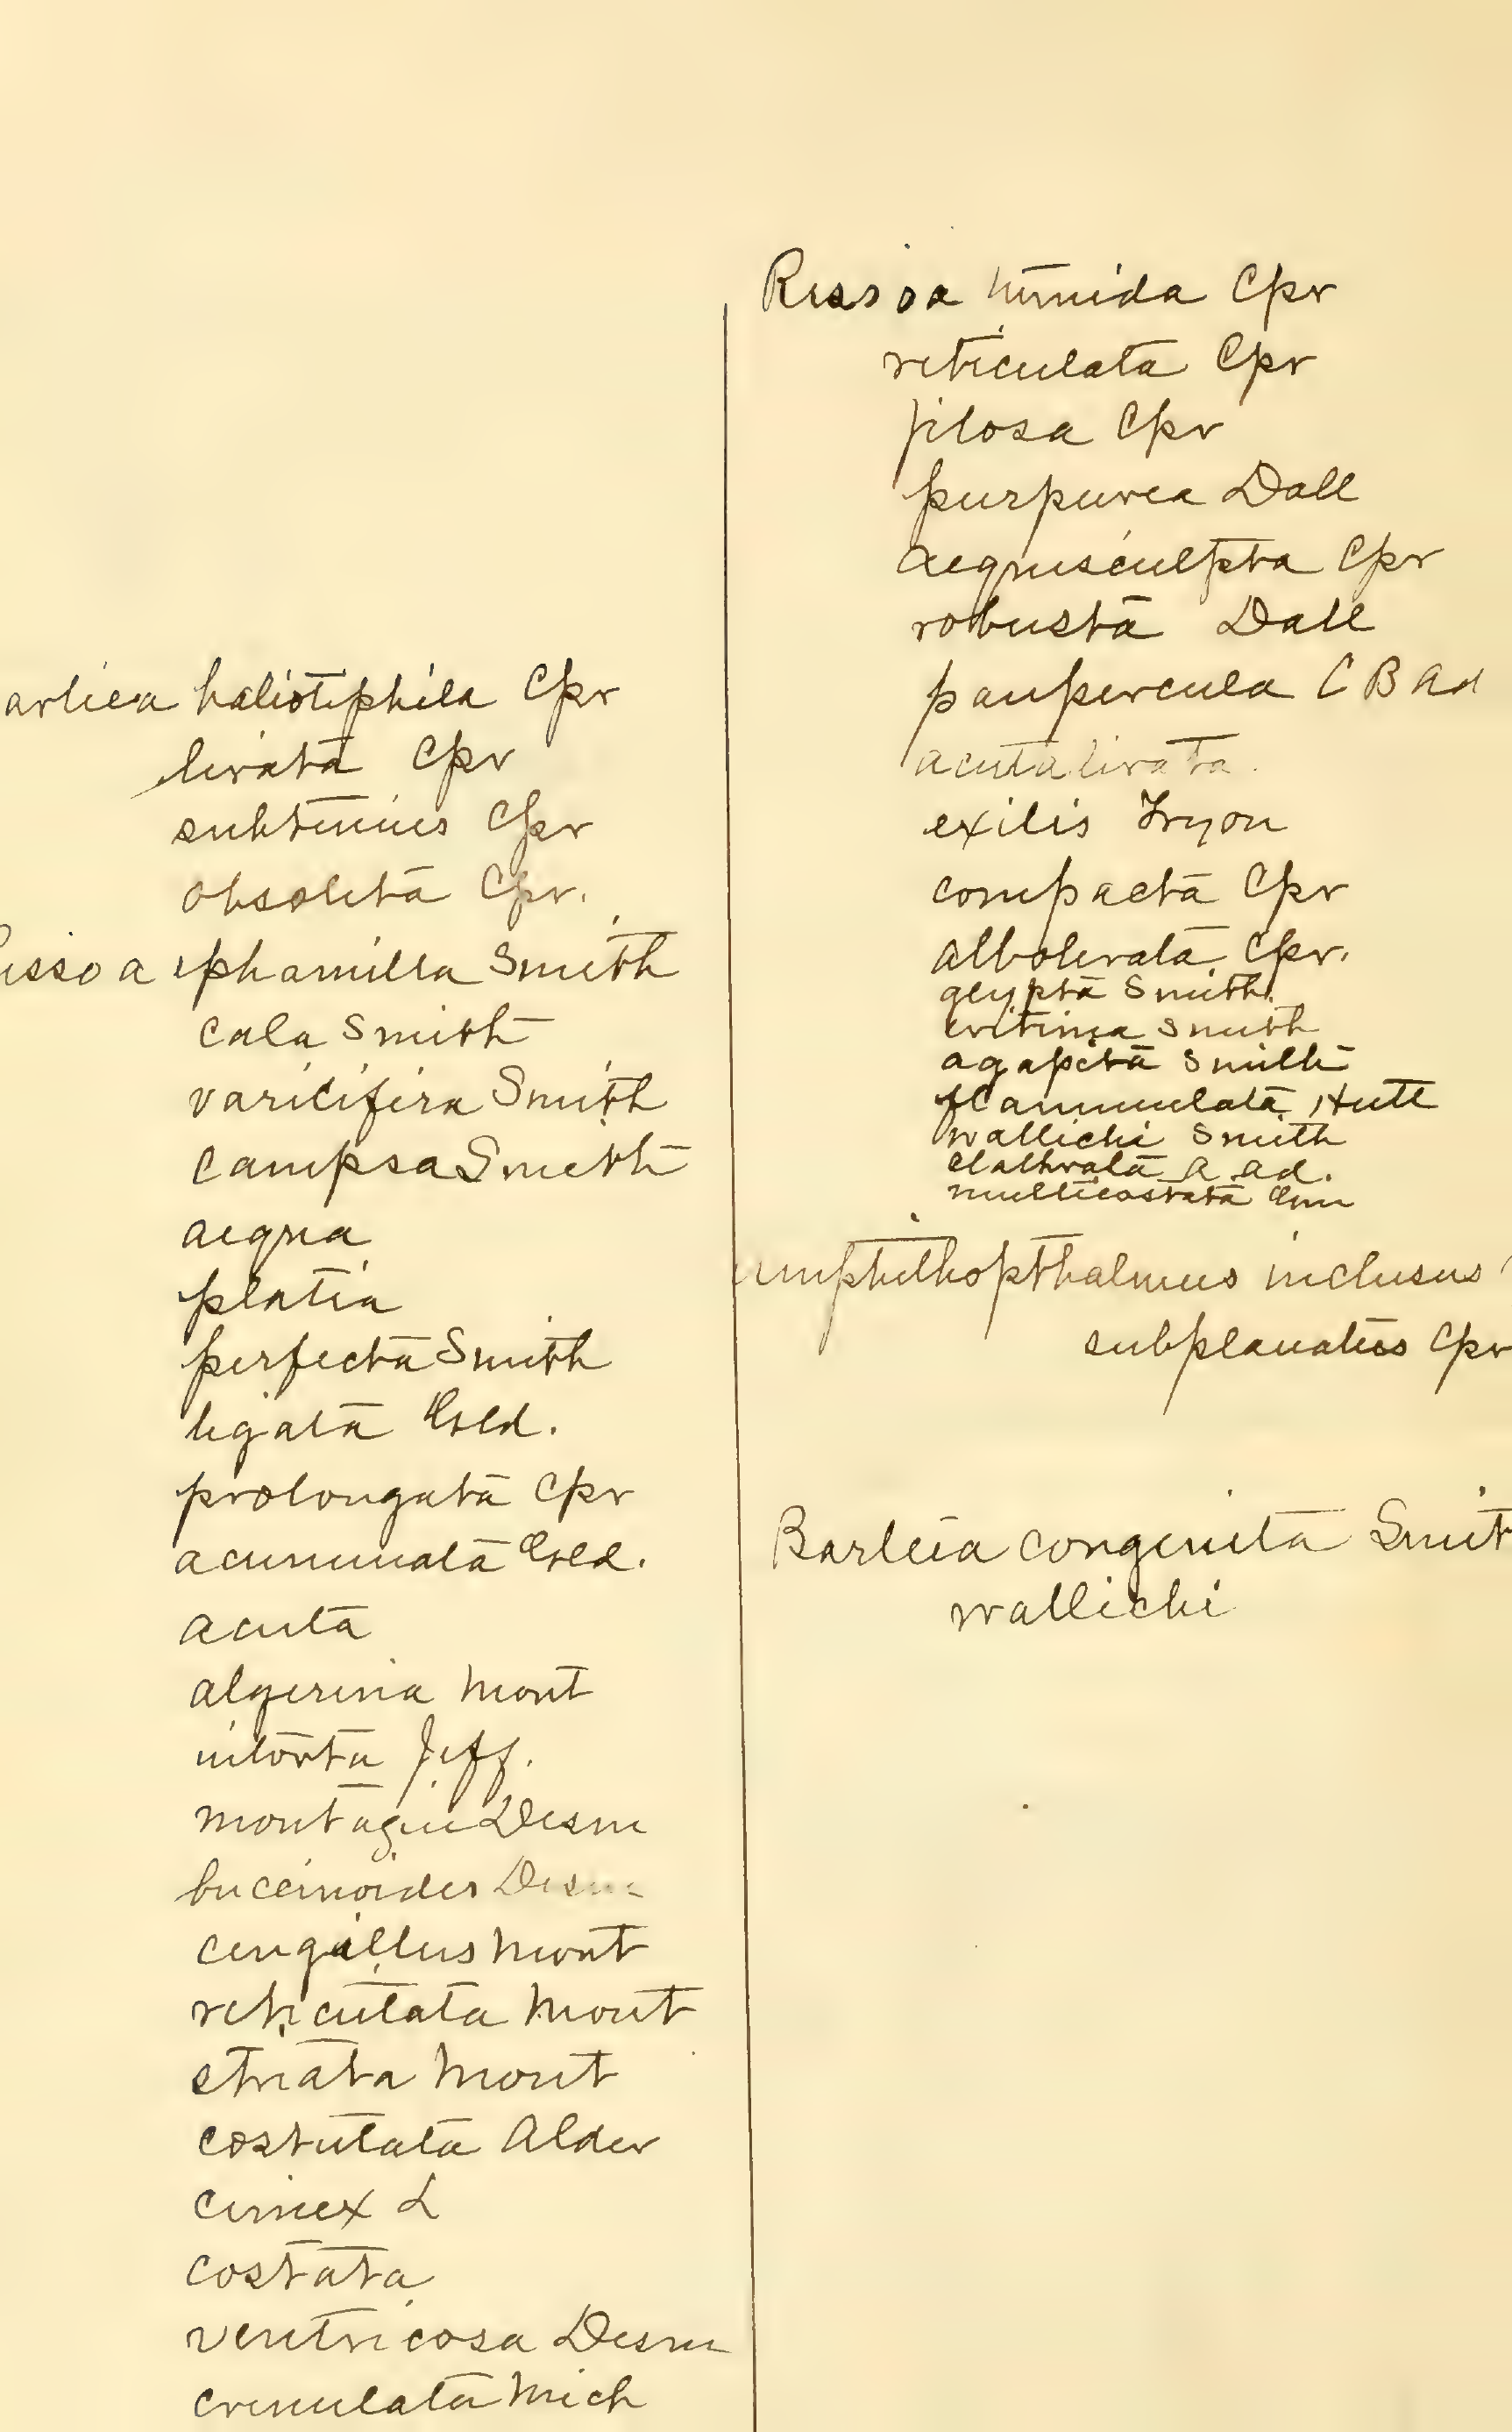 arliea haliotiphila Cpr
lirata Cpr
subtenuis Cpr
obsoleta Cpr.
issoa ephamilla Smith
cala Smith
varicifera Smith
campsa Smith
aequa
platia
perfecta Smith
ligata Gld.
prolongata Cpr
acuminata Gld.
acuta
algerina Mont
intorta Jeff.
montagui Desm
buccinoides Desm
cingillus Mont
reticulata Mont
striata Mont
costulata Alder
cimex L
costata
ventricosa Desm
crenulata Mich
Rissoa tumida Cpr
reticulata Cpr
filosa Cpr
purpurea Dall
aequisculpta Cpr
robusta Dall
paupercula C B Ad
acutalirata.
exilis Tryon
compacta Cpr
albolirata Cpr.
glypta Smith
eritima Smith
agapeta Smith
flammulata Hutt
wallichi Smith
clathrata A. Ad.
multicostata
amphithopthalmus inclusus
subplanatus Cpr
Barleia congenita Smit
wallichi